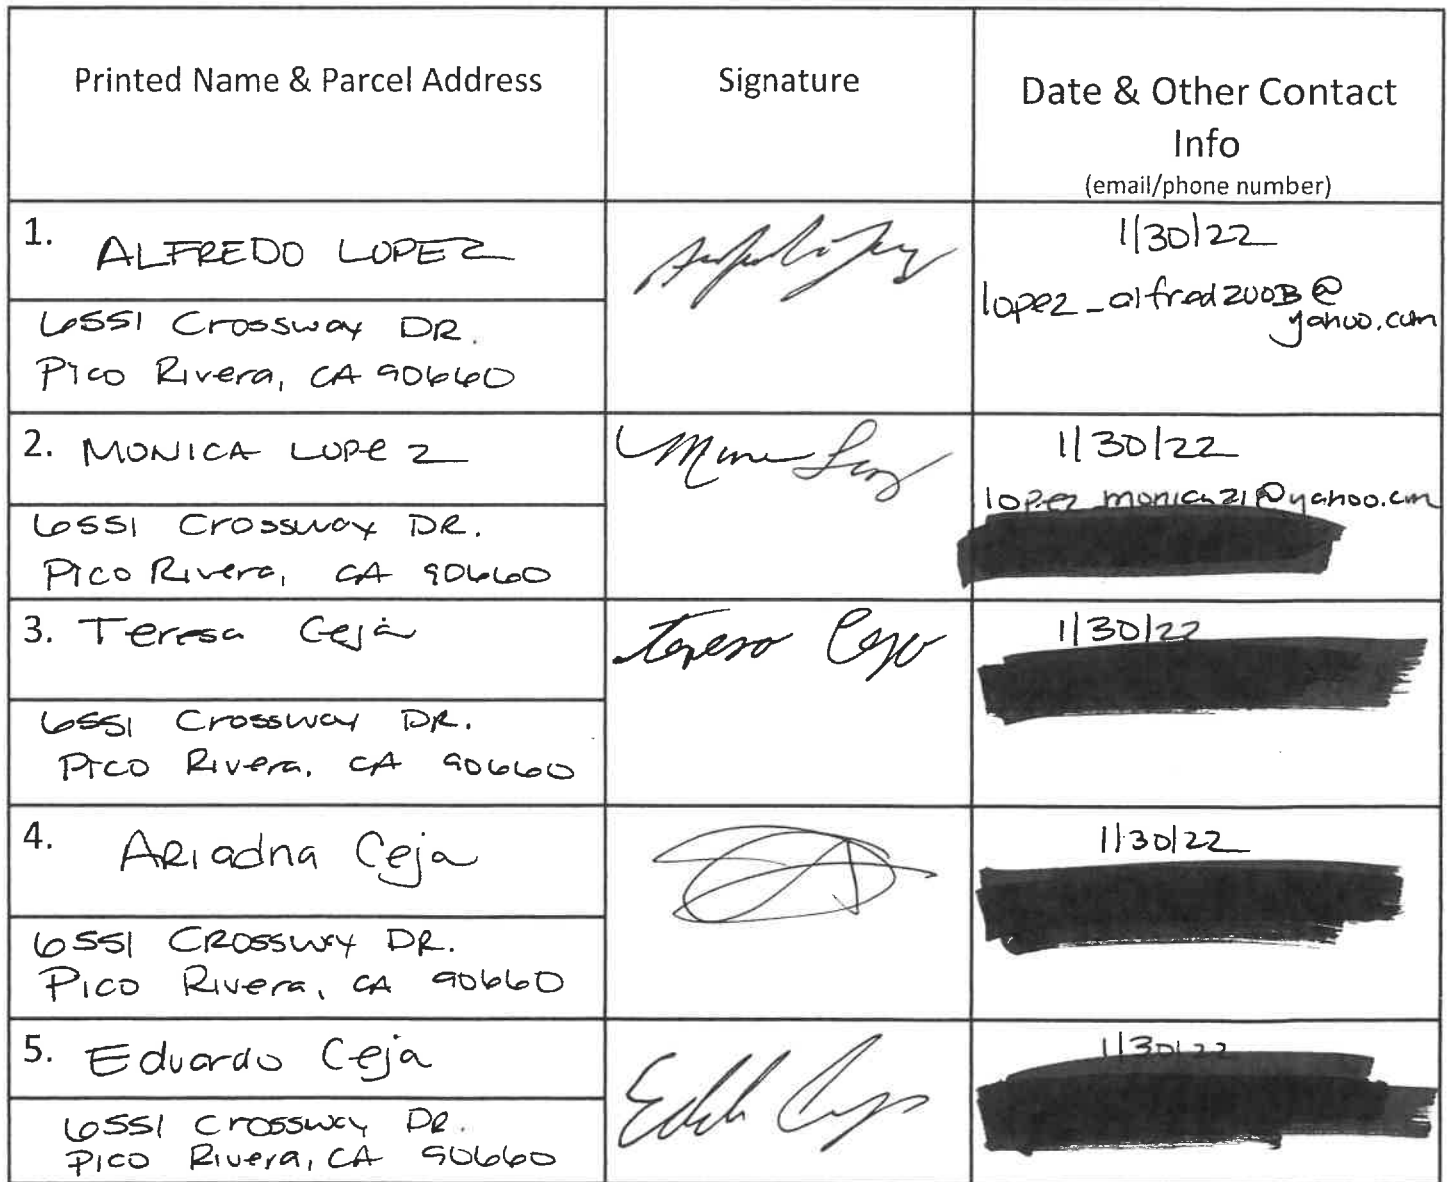 Printed Name & Parcel Address
Signature
Date & Other Contact
Info
(email/phone number)
1. ALFREDO LOPEZ
6551 Crossway DR.
Pico Rivera, CA 90660
1/30/22
yahoo.com
2. MONICA LOPEZ
6551 Crossway DR.
Pico Rivera, CA 90660
1/30/22
lopez_monica21@yahoo.com
3. Teresa Ceja
teresa Ceja
6551 Crossway DR.
Pico Rivera, CA 90660
1/30/22
4. Ariadna Ceja
6551 Crossway DR.
Pico Rivera, CA 90660
1/30/22
5. Eduardo Ceja
6551 Crossway DR.
Pico Rivera, CA 90660
1/30/22